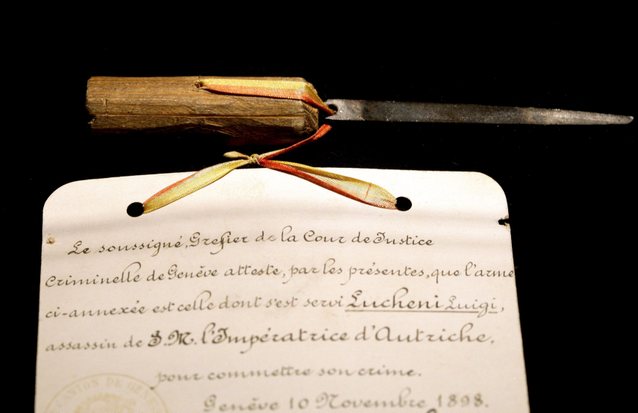 Le soussigné, Grefier de la Cour de Justice
Criminelle de Genève atteste, par les présentes, que l'arme
ci-annexée est celle dont s'est servi Lucheni Luigi,
assassin de S.M. l'Impératrice d'Autriche,
pour commettre son crime.
Genève 10 Novembre 1898.
CANTON DE GENÈVE